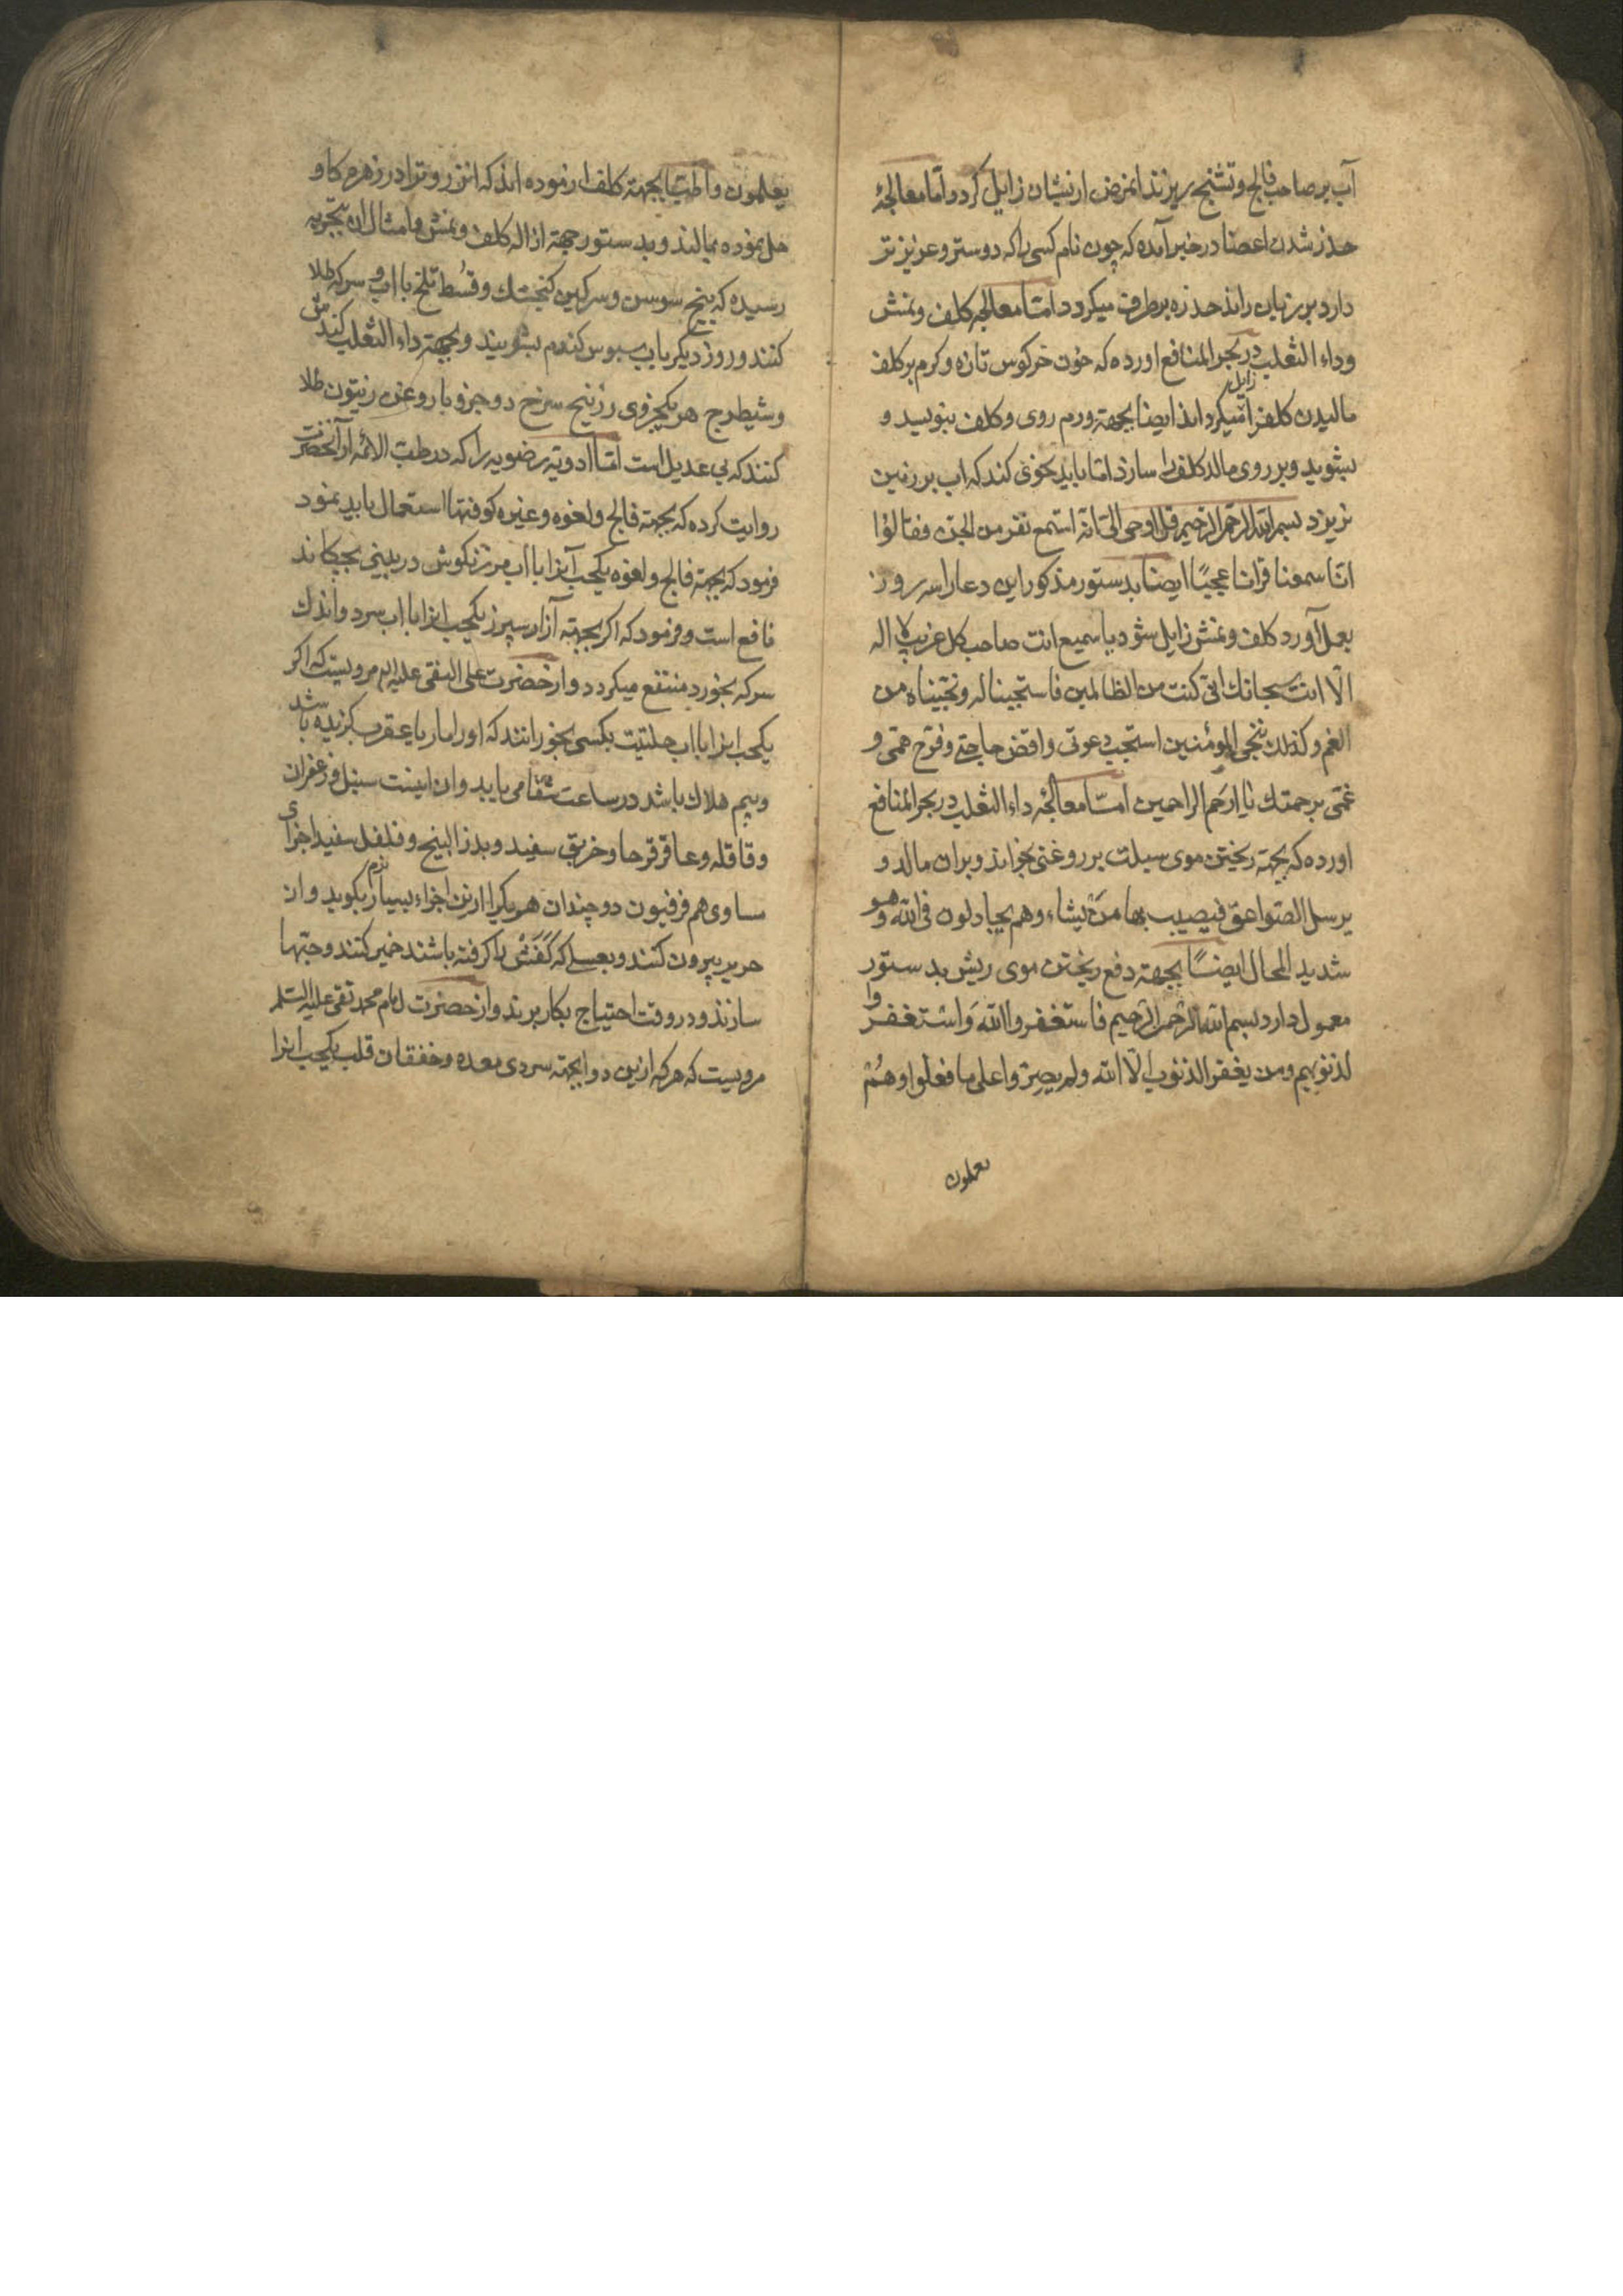 آب بر صاحب فالج و تشنج بریزند انمرض ازیشان زایل کردد و اما معالجهٔ
خدر شدن اعضا در خبر آمده که چون نام کسی را که دوستر و عزیز تر
دارد بر زبان راند خدره بر طرف میکردد امّا معالجه کلف و نمش
و داء الثعلب در بحر المنافع اورده که خون خرکوش تازه و کرم بر کلف
مالیدن کلف را زایل میکرداند ایضا بجهة ورم روی و کلف بنویسد و
بشوید و بر روی مالد کلف را سازد امّا باید بنحوی کند که اب بر زمین
نریزد بسم الله الرحمن الرحیم قل اوحی الیّ انّه استمع نفر من الجن فقالوا
انّا سمعنا قرانا عجبًا ایضا بدستور مذکور این دعا را سه روز
بعمل آورد کلف و نمش زایل شود یا سمیع انت صاحب کل غریب لا اله
الّا انت سبحانك انّی کنت من الظالمین فاستجبنا له و نجّیناه من
الغم و کذلك ننجی المؤمنین استجب دعوتی و اقض حاجتی و فرّج همّی و
غمّی برحمتك یا ارحم الراحمین امّا معالجهٔ داء الثعلب در بحر المنافع
اورده که بجهة ریختن موی سبلت بر روغنی بخواند و بران مالد و
یرسل الصّواعق فیصیب بها من یشاء و هم یجادلون فی الله و هو
شدید المحال ایضًا بجهة دفع ریختن موی ریش بدستور
معمول دارد بسم الله الرحمن الرحیم فاستغفروا الله و استغفروا
لذنوبهم و من یغفر الذنوب الّا الله و لم یصرّوا علی ما فعلوا و هُمْ
یعلمون
یعلمون و اطبّا بجهة کلف ازموده اند که انزروترا در زهره کاو
حل نموده بمالند و بدستور جهة ازاله کلف و نمش و امثال ان بتجربه
رسیده که بیخ سوسن و سرکین کنجشك و قُسط تلخ با اب و سرکه طلا
کنند و روز دیکر باب سبوس کندم بشویند و بجهة داء الثعلب کندش
و شیطرج هر یکجزوی زرنیخ سرخ دو جزو با روغن زیتون طلا
کنند که بی عدیل است امّا ادویه رضویه را که در طب الائمه از آنحضرت
روایت کرده که بجهة فالج و لغوه و غیره کوفتها استعمال باید نمود
فرمود که بجهة فالج و لغوه یکحب آنرا با اب مرزنکوش در بینی بچکانند
نافع است و فرمود که اکر بجهة آزار سپرز یکحب انرا با اب سرد و اندك
سرکه بخورد منتفع میکردد و از حضرت علی النقی علیه السلام مرویست که اکر
یکحب انرا با اب حلتیت بکسی بخورانند که او را مار یا عقرب کزیده باشد
و بیم هلاك باشد در ساعت شفا می یابد و ان اینست سنبل و زعفران
و قاقله و عاقرقرحا و خربق سفید و بذر البنج و فلفل سفید اجزای
مساوی هم فرفیون دو چندان هر یک را ازین اجزاء بسیار نرم بکوبد و از
حریر بیرون کنند و بعسلی که کَفَش را کرفته باشند خمیر کنند و حبّها
سازند و در وقت احتیاج بکار برند و از حضرت امام محمد تقی علیه السلم
مرویست که هر که ازین دوا بجهة سردی معده و خفقان قلب یکحب انرا